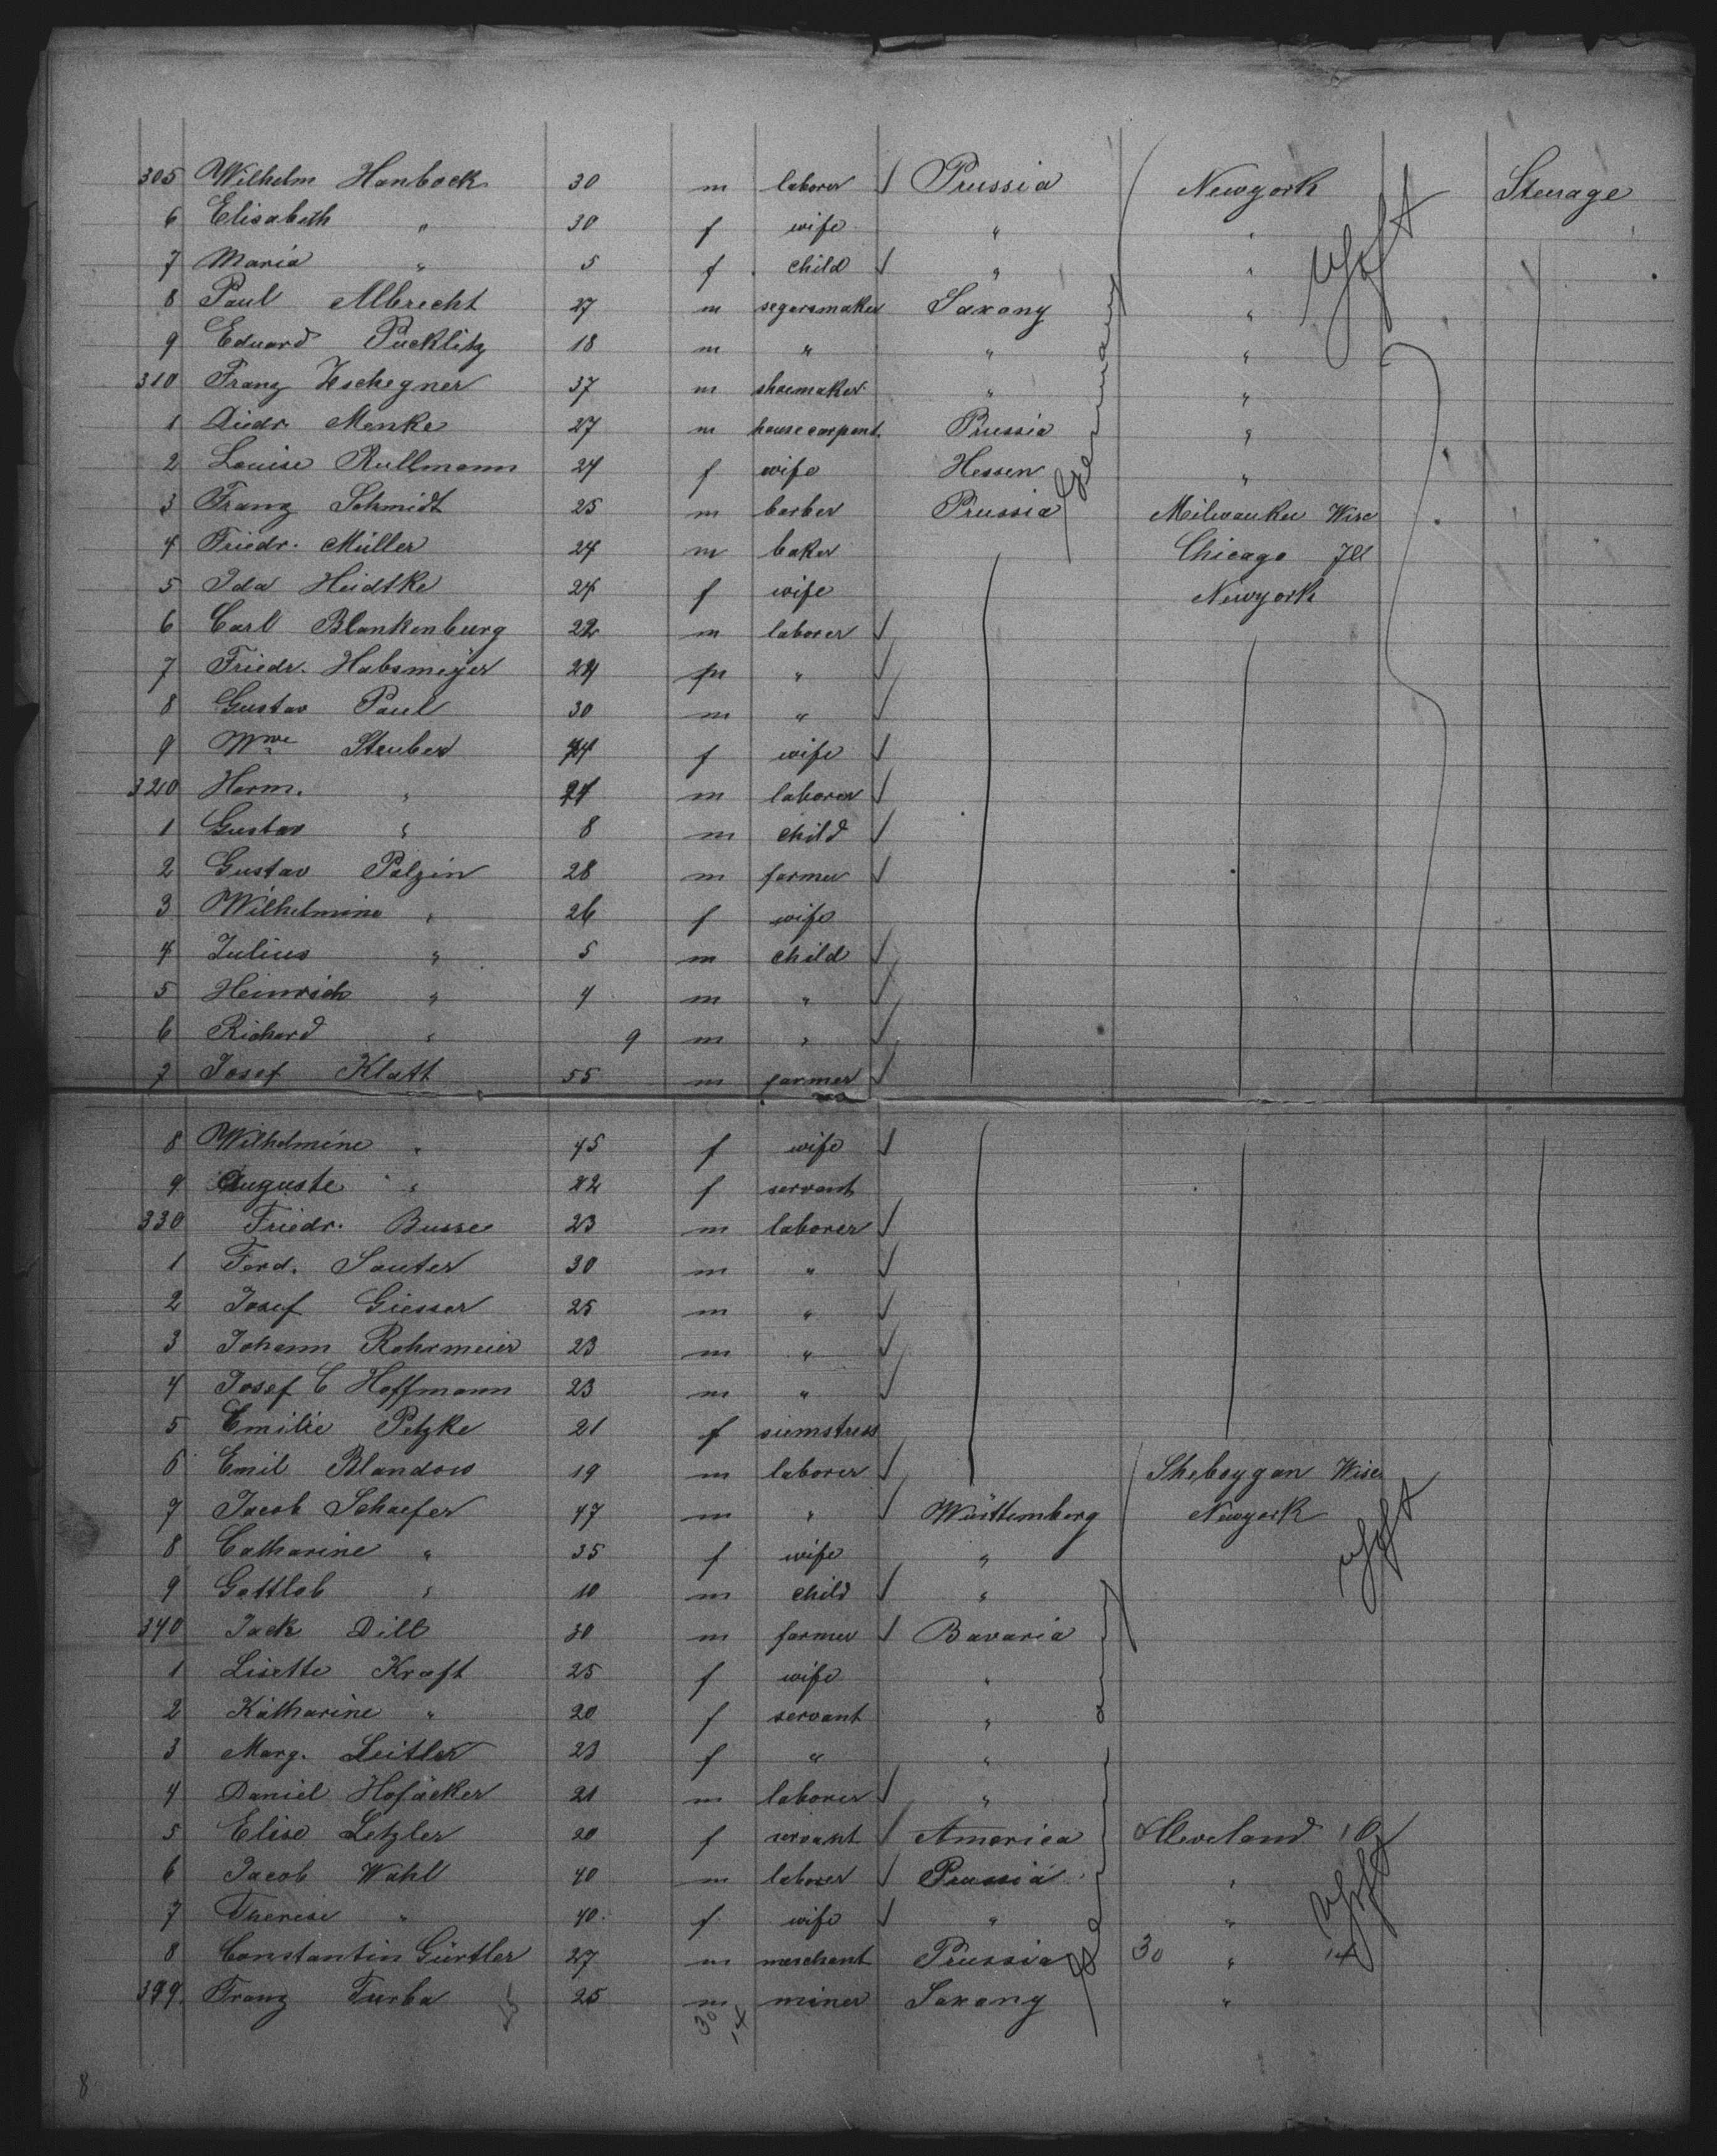 305 Wilhelm Hanbock 30 m laborer Prussia Newyork Steerage
6 Elisabeth " 30 f wife " "
7 Maria " 5 f child " "
8 Paul Albrecht 27 m segarsmaker Saxony "
9 Eduard Pücklitz 18 m " " "
310 Franz Zschegner 37 m shoemaker " "
1 Diedr. Menke 27 m house carpent. Prussia "
2 Louise Rullmann 24 f wife Hessen "
3 Franz Schmidt 25 m barber Prussia Milwaukee Wisc
4 Friedr. Müller 24 m baker Chicago Ill
5 Ida Heidtke 24 f wife Newyork
6 Carl Blankenburg 22 m laborer
7 Friedr. Habsmeÿer 24 m "
8 Gustav Paul 30 m "
9 Wwe Struber f wife
320 Herm. " m laborer
1 Gustav " 8 m child
2 Gustav Palzin 28 m farmer
3 Wilhelmine " 26 f wife
4 Julius " 5 m child
5 Heinrich " 4 m "
6 Richard " 9 m "
7 Josef Klatt 55 m farmer
8 Wilhelmine " 45 f wife
9 Auguste " 22 f servant
330 Friedr. Busse 23 m laborer
1 Ferd. Sauter 30 m "
2 Josef Giesser 25 m "
3 Johann Rohrmeier 23 m "
4 Josef C Hoffmann 23 m "
5 Emilie Petzke 21 f siemstress
6 Emil Blandow 19 m laborer Sheboygan Wisc
7 Jacob Schaefer 47 m " Württemberg Newyork
8 Catharine " 35 f wife "
9 Gottlob " 10 m child "
340 Jack Dill 30 m farmer Bavaria
1 Lisette Kraft 25 f wife "
2 Katharine " 20 f servant "
3 Marg. Leitler 23 f " "
4 Daniel Hofäcker 21 m laborer "
5 Elise Letzler 20 f servant America Cleveland O
6 Jacob Wahl 40 m laborer Prussia "
7 Therese " 40 f wife " "
8 Constantin Gürtler 27 m merchant Prussia 30 " 14
349. Franz Turba 25 m miner Saxony "
Germany
Germany
30 14
8